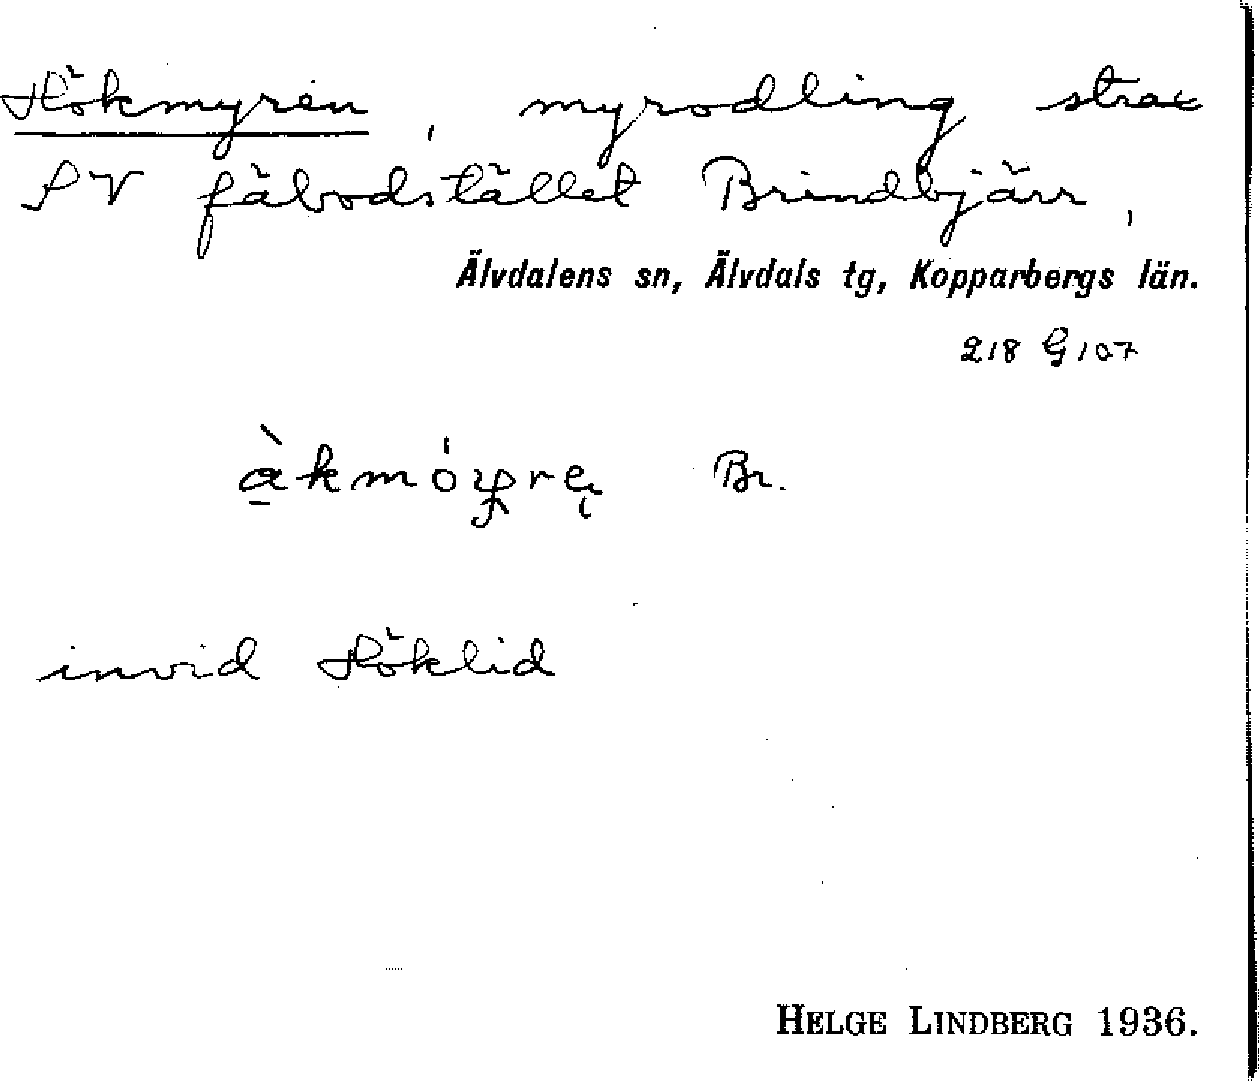 Hökmyren, myrodling strax
SV fäbodstället Brindbjärr,
Älvdalens sn, Älvdals tg, Kopparbergs län.
218 G 107
Br.
invid Höklid
HELGE LINDBERG 1936.